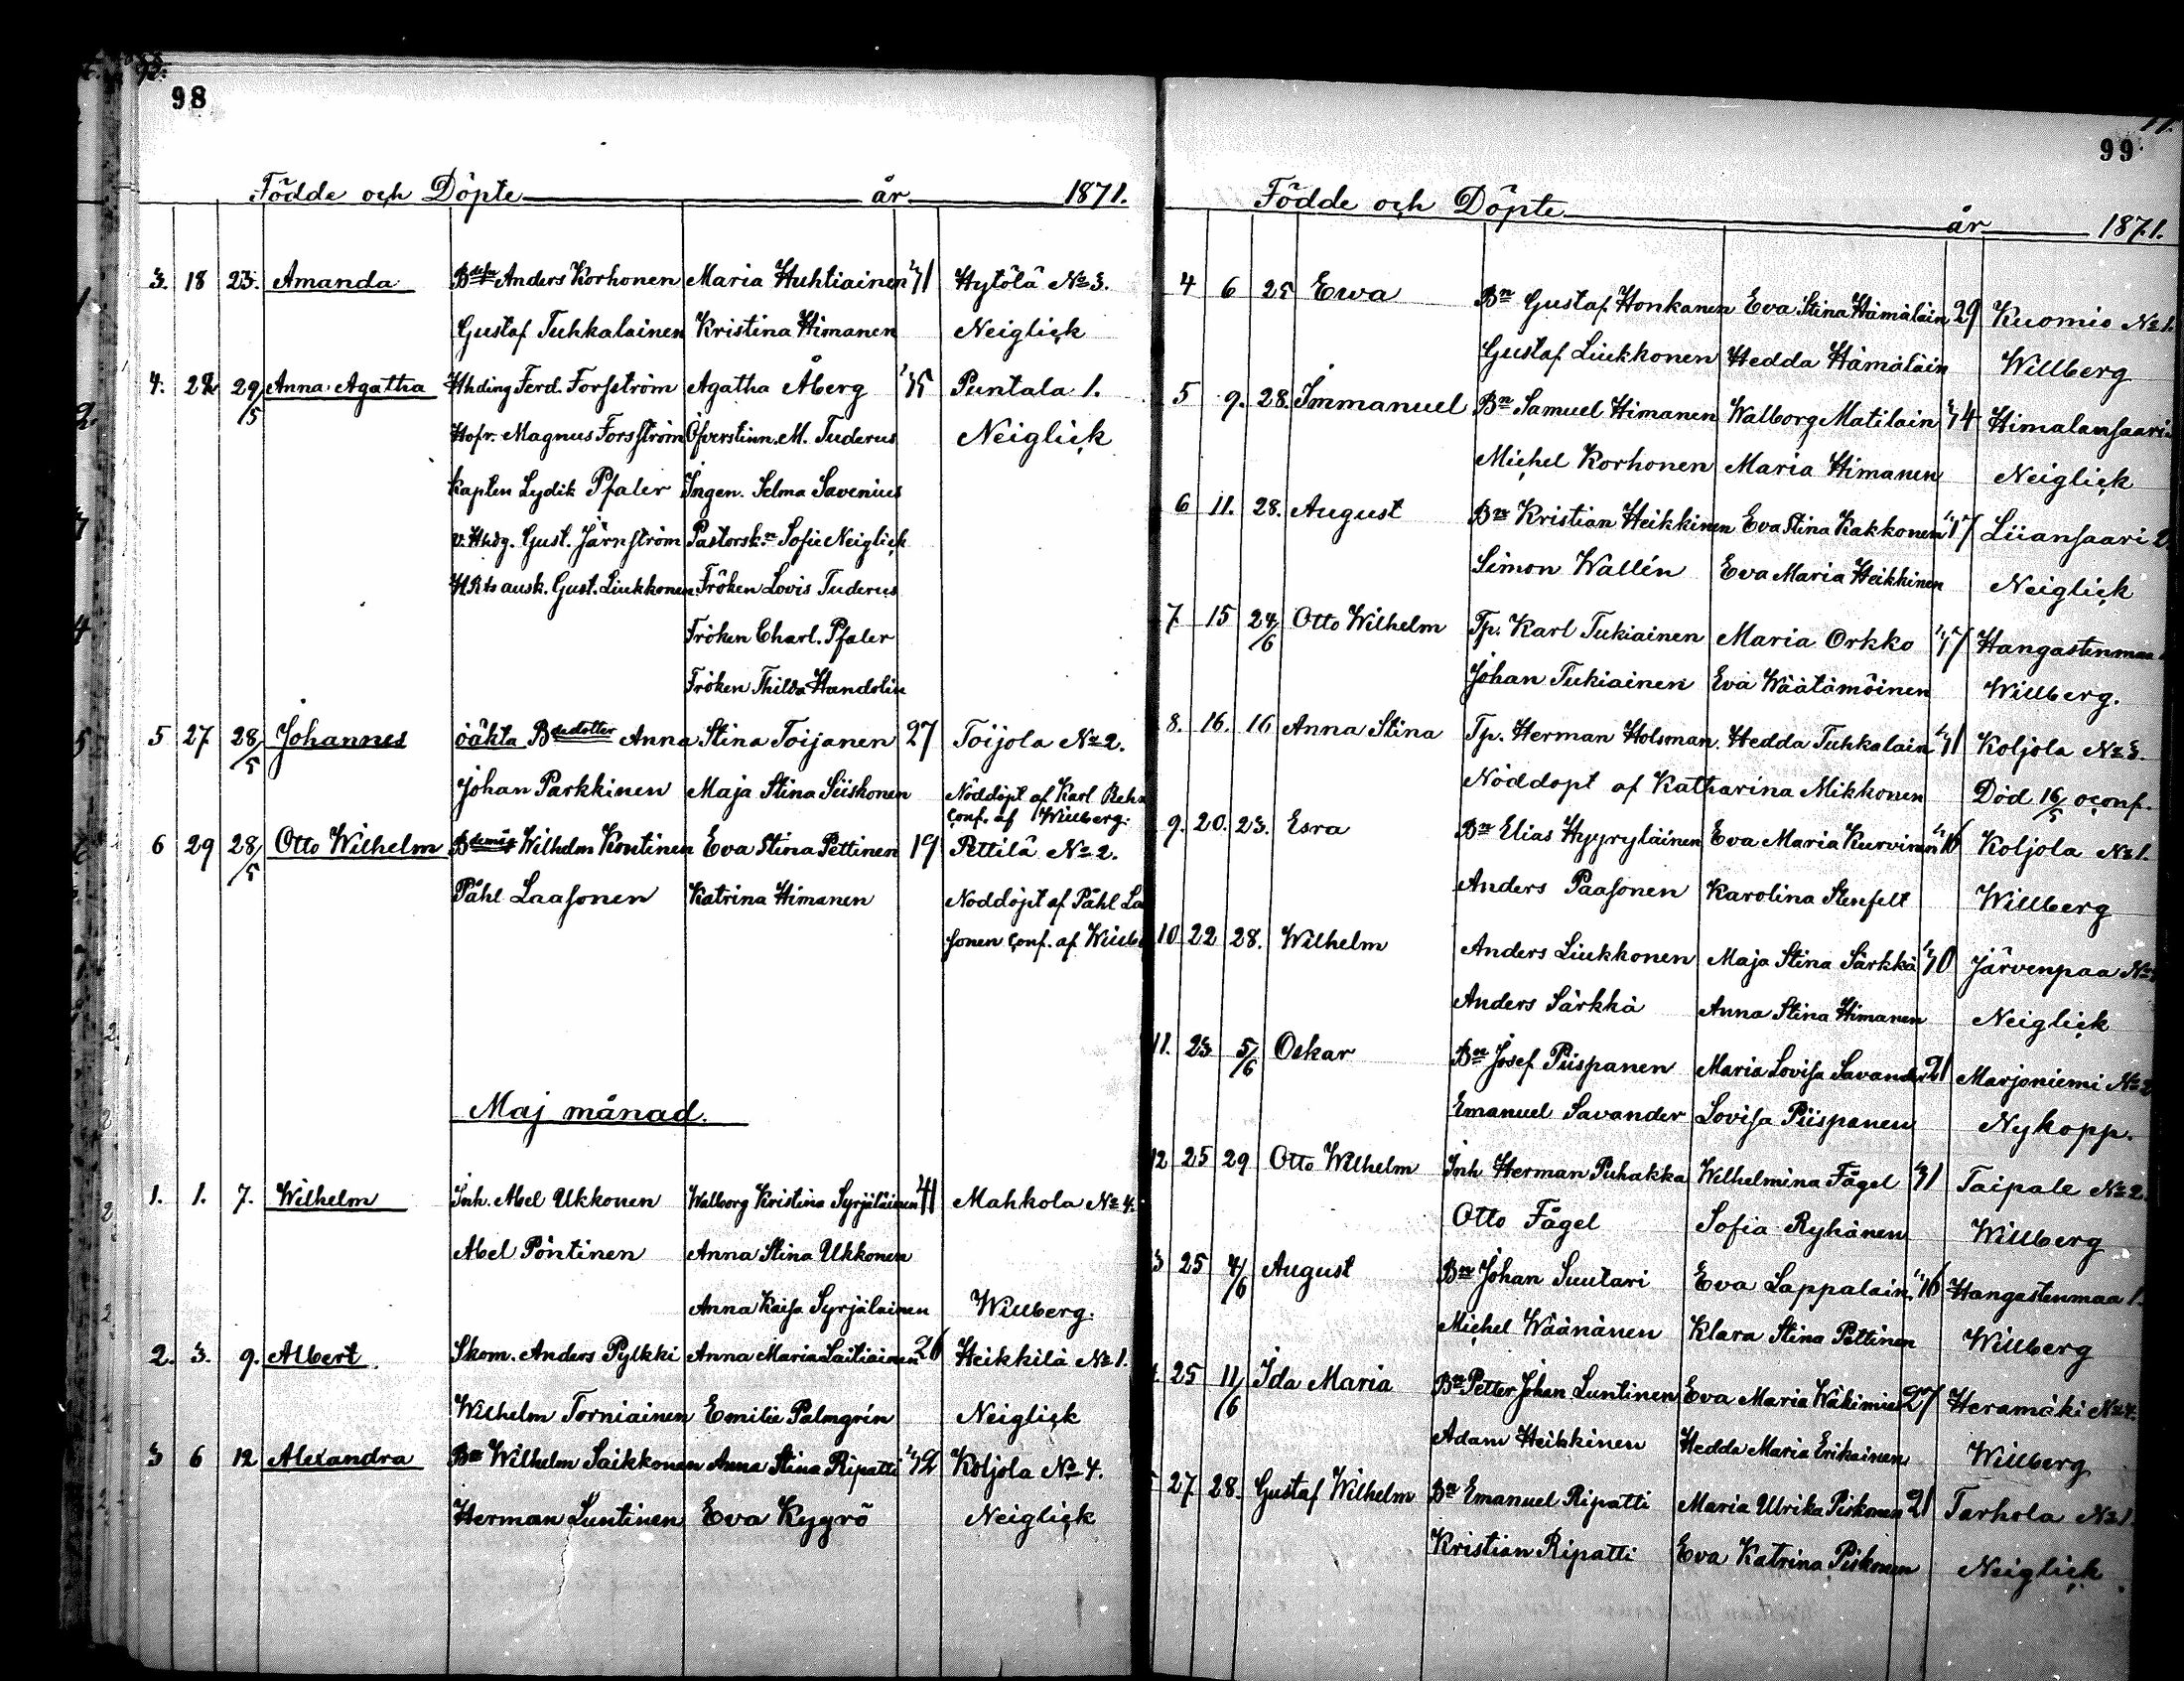 98
Födde och Döpte år 1871.
3. 18 23. Amanda Anders Korhonen Maria Huhtiainen 31 Hytölä No 3.
Gustaf Tuhkalainen Kristina Himanen Neiglick
4. 28 29/5 Anna Agatha Hhding Ferd. Forsström Agatha Åberg 35 Puntala 1.
Hofr. Magnus Forsström Öfverstinn. M. Tuderus Neiglick
Kapten Lydik Pfaler Ingen. Selma Savenius
v. Hhdg. Gust. Järnström Pastorsk.n Sofie Neiglick
HRts ausk. Gust. Liukkonen Fröken Lovis Tuderus
Fröken Charl. Pfaler
Fröken Thilda Handolin
5 27 28/5 Johannes oäkta Bdedotter Anna Stina Toijanen 27 Toijola No 2.
Johan Parkkinen Maja Stina Siiskonen Nöddöpt af Karl Behm
conf. af Willberg.
6 29 28/5 Otto Wilhelm Bdemåg Wilhelm Kontinen Eva Stina Pettinen 19 Pettilä No 2.
Påhl Laasonen Katrina Himanen Nöddöpt af Påhl Laa
sonen conf. af Willb
Maj månad.
1. 1. 7. Wilhelm Inh. Abel Ukkonen Walborg Kristina Syrjäläinen 41 Mahkola No 4.
Abel Pöntinen Anna Stina Ukkonen
Anna Kaisa Syrjäläinen Willberg.
2. 3. 9. Albert Skom. Anders Pylkki Anna Maria Laitiainen 26 Heikkilä No 1.
Wilhelm Torniainen Emilie Palmgrén Neiglick
3 6 12 Alexandra Bn Wilhelm Saikkonen Anna Stina Ripatti 32 Koljola No 4.
Herman Luntinen Eva Kyyrö Neiglick
99
Födde och Döpte år 1871.
4 6 25 Ewa Bn Gustaf Honkanen Eva Stina Hämäläin 29 Kuomio No 1.
Gustaf Liukkonen Hedda Hämäläin Willberg
5 9. 28. Immanuel Bn Samuel Himanen Walborg Matilain 34 Himalansaari
Michel Korhonen Maria Himanen Neiglick
6 11. 28. August Bn Kristian Heikkinen Eva Stina Kakkonen 17 Liiansaari 2.
Simon Wallén Eva Maria Heikkinen Neiglick
7. 15 24/6 Otto Wilhelm Tp. Karl Tukiainen Maria Orkko 47 Hangastenmaa
Johan Tukiainen Eva Wäätämöinen Willberg.
8. 16. 16 Anna Stina Tp. Herman Holsman Hedda Tuhkalain 31 Koljola No 3.
Nöddöpt af Katharina Mikkonen Död 16/5 oconf.
9. 20. 23. Esra Bn Elias Hyyryläinen Eva Maria Kurvinen 46 Koljola No 1.
Anders Paasonen Karolina Stenfelt Willberg
10 22 28. Wilhelm Anders Liukkonen Maja Stina Särkkä 30 Järvenpaa No
Anders Särkkä Anna Stina Himanen Neiglick
11. 23 5/6 Oskar Bn Josef Piispanen Maria Lovisa Savander 21 Marjoniemi No 2
Emanuel Savander Lovisa Piispanen Nykopp.
12 25 29 Otto Wilhelm Inh Herman Puhakka Wilhelmina Fågel 31 Taipale No 2.
Otto Fågel Sofia Ryhänen Willberg
3 25 4/6 August Bn Johan Suutari Eva Lappalain. 46 Hangastenmaa 1.
Michel Wäänänen Klara Stina Pettinen Willberg
25 11/6 Ida Maria Bn Petter Johan Luntinen Eva Maria Wäkimies 27 Heramäki No 4.
Adam Heikkinen Hedda Maria Erikainen Willberg
27 28. Gustaf Wilhelm Bn Emanuel Ripatti Maria Ulrika Piskonen 21 Tarhola No 1.
Kristian Ripatti Eva Katrina Piskonen Neiglick